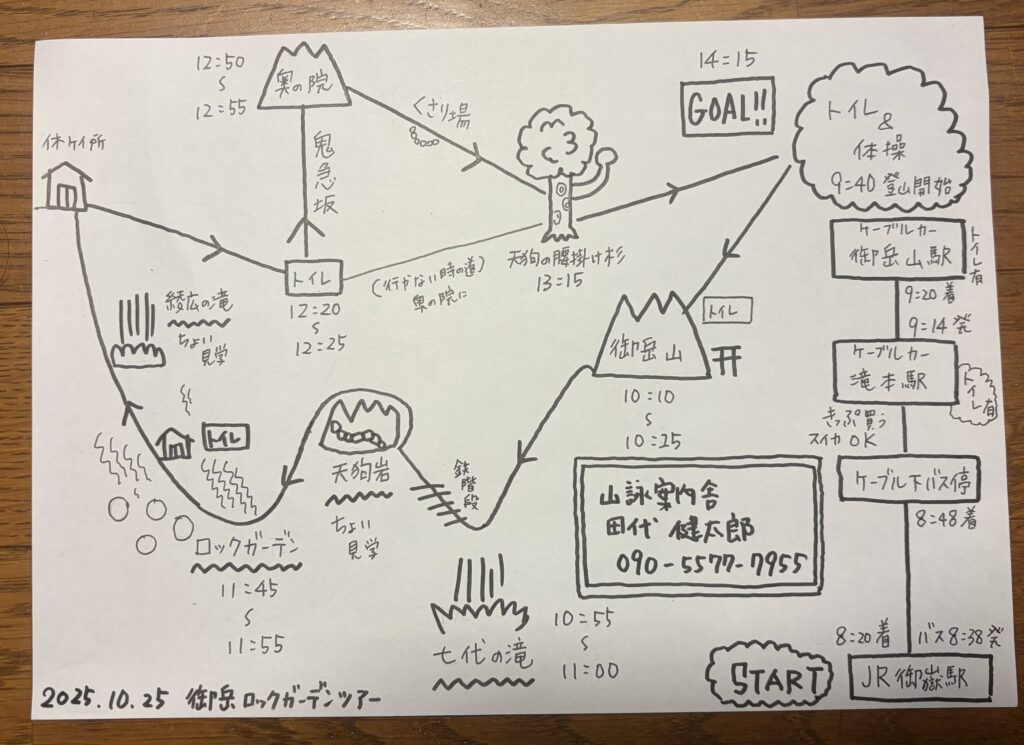 12:50
〜
12:55
奥の院
くさり場
鬼急坂
14:15
GOAL!!
トイレ
&
体操
9:40 登山開始
休ケイ所
トイレ
12:20
〜
12:25
(行かない時の道)
奥の院に
天狗の腰掛け杉
13:15
ケーブルカー
御岳山駅
トイレ有
9:20 着
9:14 発
ケーブルカー
滝本駅
トイレ有
きっぷ買う
スイカ OK
ケーブル下バス停
8:48着
8:20着
バス8:38発
JR御嶽駅
START
綾広の滝
ちょい
見学
トイレ
御岳山
10:10
〜
10:25
トイレ
天狗岩
ちょい
見学
鉄階段
ロックガーデン
11:45
〜
11:55
七代の滝
10:55
〜
11:00
山詠案内舎
田代 健太郎
090-5577-7955
2025.10.25 御岳ロックガーデンツアー